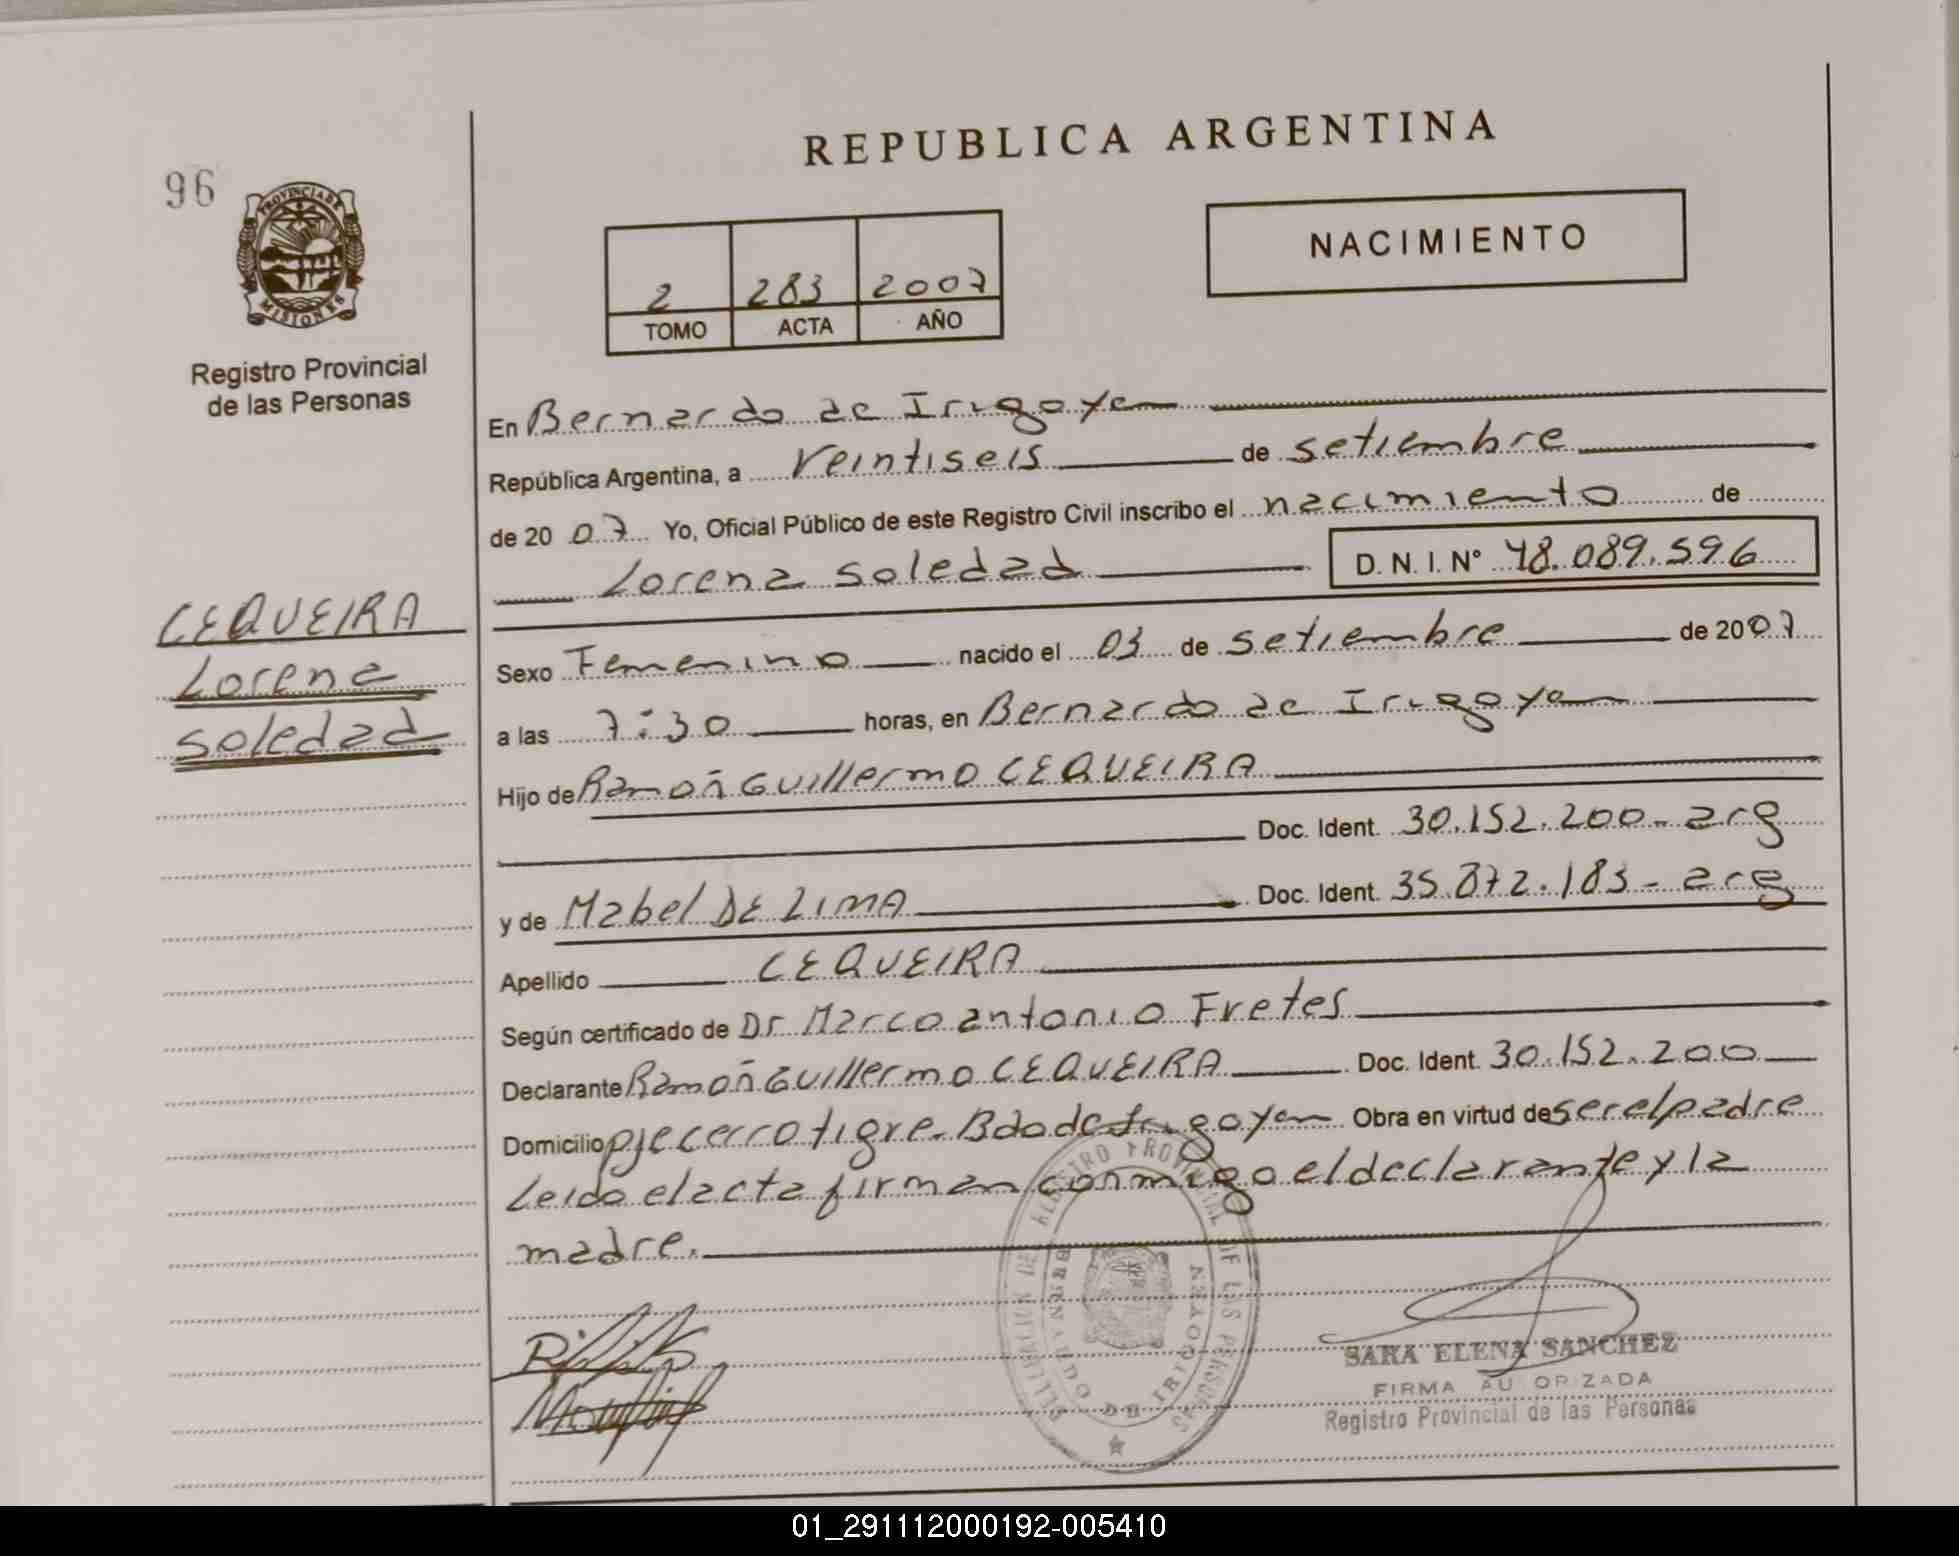 REPUBLICA ARGENTINA
96
PROVINCIA DE
MISIONES
Registro Provincial
de las Personas
NACIMIENTO
2 283 2007
TOMO ACTA AÑO
En Bernardo de Irigoyen
República Argentina, a Veintiseis de setiembre
de 20 07 Yo, Oficial Público de este Registro Civil inscribo el nacimiento de
Lorena Soledad D. N. I. Nº 48.089.596
CEQUEIRA
Lorena
Soledad
Sexo Femenino nacido el 03 de setiembre de 2007
a las 7:30 horas, en Bernardo de Irigoyen
Hijo de Ramoñ Guillermo CEQUEIRA
Doc. Ident. 30.152.200- arg
y de Mabel DE LIMA Doc. Ident. 35.872.183- arg
Apellido CEQUEIRA
Según certificado de Dr Marco antonio Fretes
Declarante Ramoñ Guillermo CEQUEIRA Doc. Ident. 30.152.200
Domicilio pje cerro tigre. Bdo de Irigoyen Obra en virtud de ser el padre
Leido el acta firman conmigo el declarante y la
madre.
REGISTRO PROVINCIAL DE LAS PERSONAS
BERNARDO DE IRIGOYEN
SARA ELENA SANCHEZ
FIRMA AUTORIZADA
Registro Provincial de las Personas
01_291112000192-005410